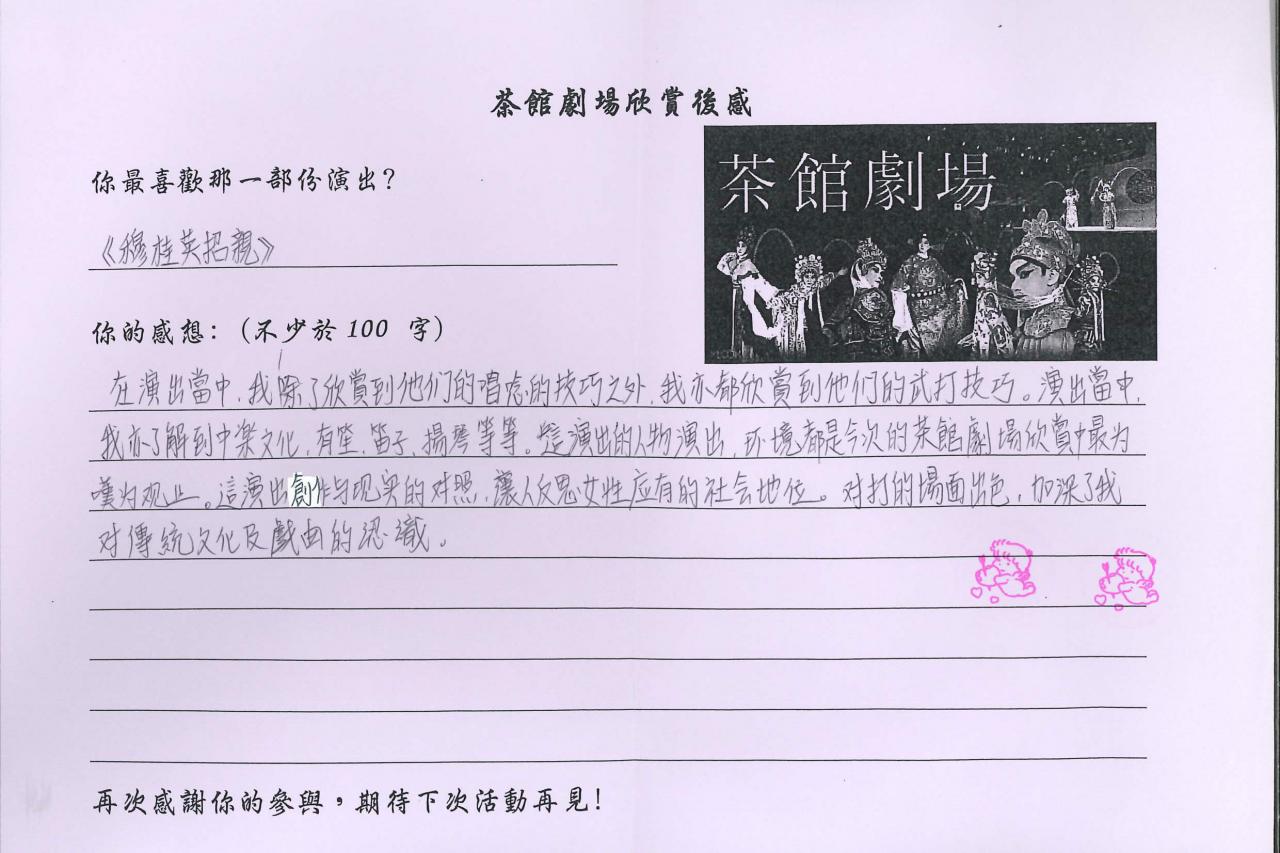 茶館劇場欣賞後感
茶館劇場
你最喜歡那一部份演出?
《穆桂英招親》
你的感想:(不少於100 字)
在演出當中,我除了欣賞到他们的唱唸的技巧之外,我亦都欣賞到他们的武打技巧。演出當中,
我亦了解到中樂文化,有笙,笛子,揚琴等等。這演出的人物演出,环境都是今次的茶館劇場欣賞中最为
嘆为观止。這演出創作与现实的对照,讓人反思女性应有的社会地位。对打的場面出色,加深了我
对傳統文化及戲曲的認識。
再次感謝你的參與,期待下次活動再見!